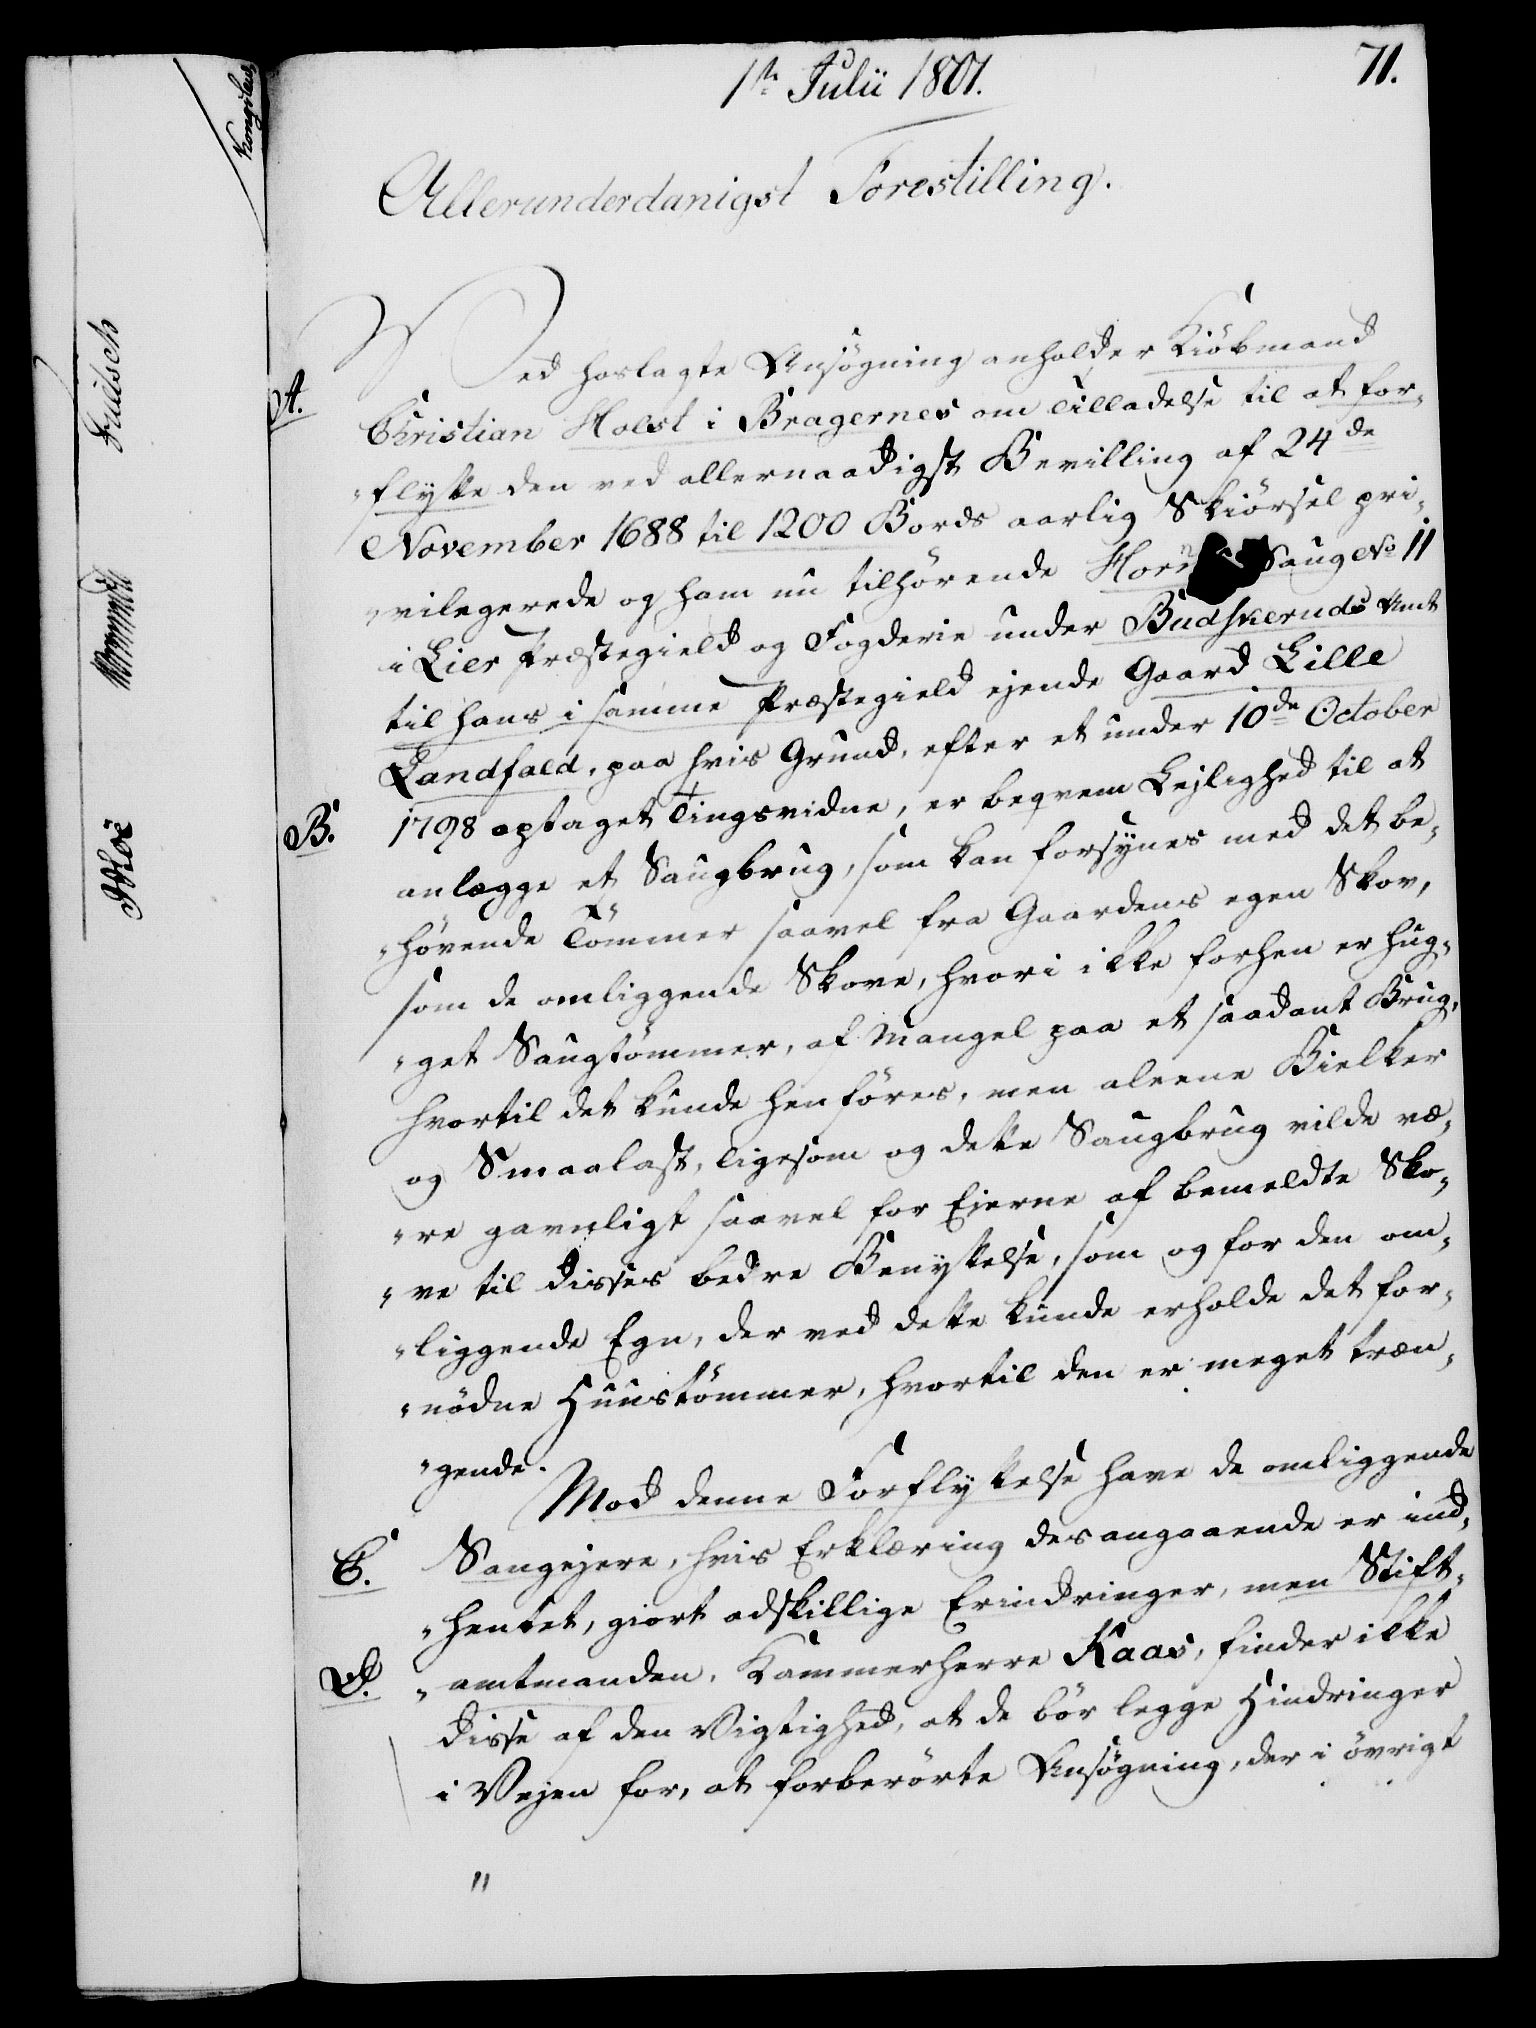 1ste Julii 1801.
71.
Allerunderdanigst Forestilling.
A.
Ved hoslagte Ansøgning anholder Kiöbmand
Christian Holst i Bragernes om Tilladelse til at for-
flytte den ved allernaadigst Bevilling af 24de
November 1688 til 1200 Bords aarlig Skiörsel pri-
vilegerede og ham nu tilhørende Saug No 11
i Lier Præstegield og Fogderie under Budskeruds Amt
til hans i samme Præstegield ejende Gaard Lille
Landfald, paa hvis Grund, efter et under 10de October
B.
1798 optaget Tingsvidne, er beqvem Lejlighed til at
anlægge et Saugbrug, som kan forsynes med det be-
hövende Tömmer saavel fra Gaardens egen Skov,
som de omliggende Skove, hvori ikke forhen er hug-
get Saugtömmer, af Mangel paa et saadant Brug,
hvortil det kunde henföres, men alene Bielker
og Smaalast, ligesom og dette Saugbrug vilde væ-
re gavnligt saavel for Ejerne af bemeldte Sko-
ve til disses bedre Benyttelse, som og for den om-
liggende Egn, der ved dette kunde erholde det for-
nödne Huustömmer, hvortil den er meget træn-
gende.
Mod denne Forflyttelse have de omliggende
C.
Saugejere, hvis Erklæring desangaaende er ind-
hentet, giort adskillige Erindringer, men Stift-
D.
amtmanden, Kammerherre Kaas, finder ikke
disse af den Vigtighed, at de bör legge Hindringer
i Vejen for, at forberörte Ansögning, der i övrigt